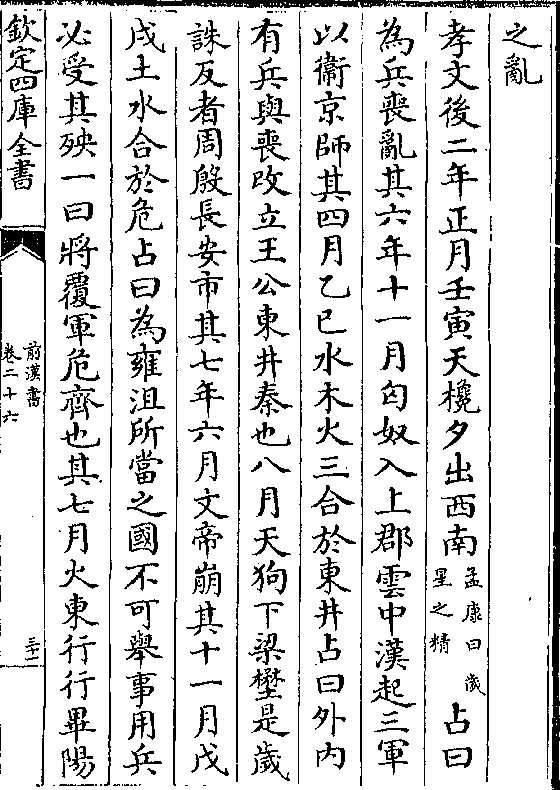 之亂
孝文後二年正月壬寅天欃夕出西南孟康曰歲星之精占曰
為兵喪亂其六年十一月匈奴入上郡雲中漢起三軍
以衞京師其四月乙巳水木火三合於東井占曰外内
有兵與喪改立王公東井秦也八月天狗下梁壄是歲
誅反者周殷長安市其七年六月文帝崩其十一月戊
戌土水合於危占曰為雍沮所當之國不可舉事用兵
必受其殃一曰將覆軍危齊也其七月火東行行畢陽
欽定四庫全書
前漢書
卷二十六
三十一